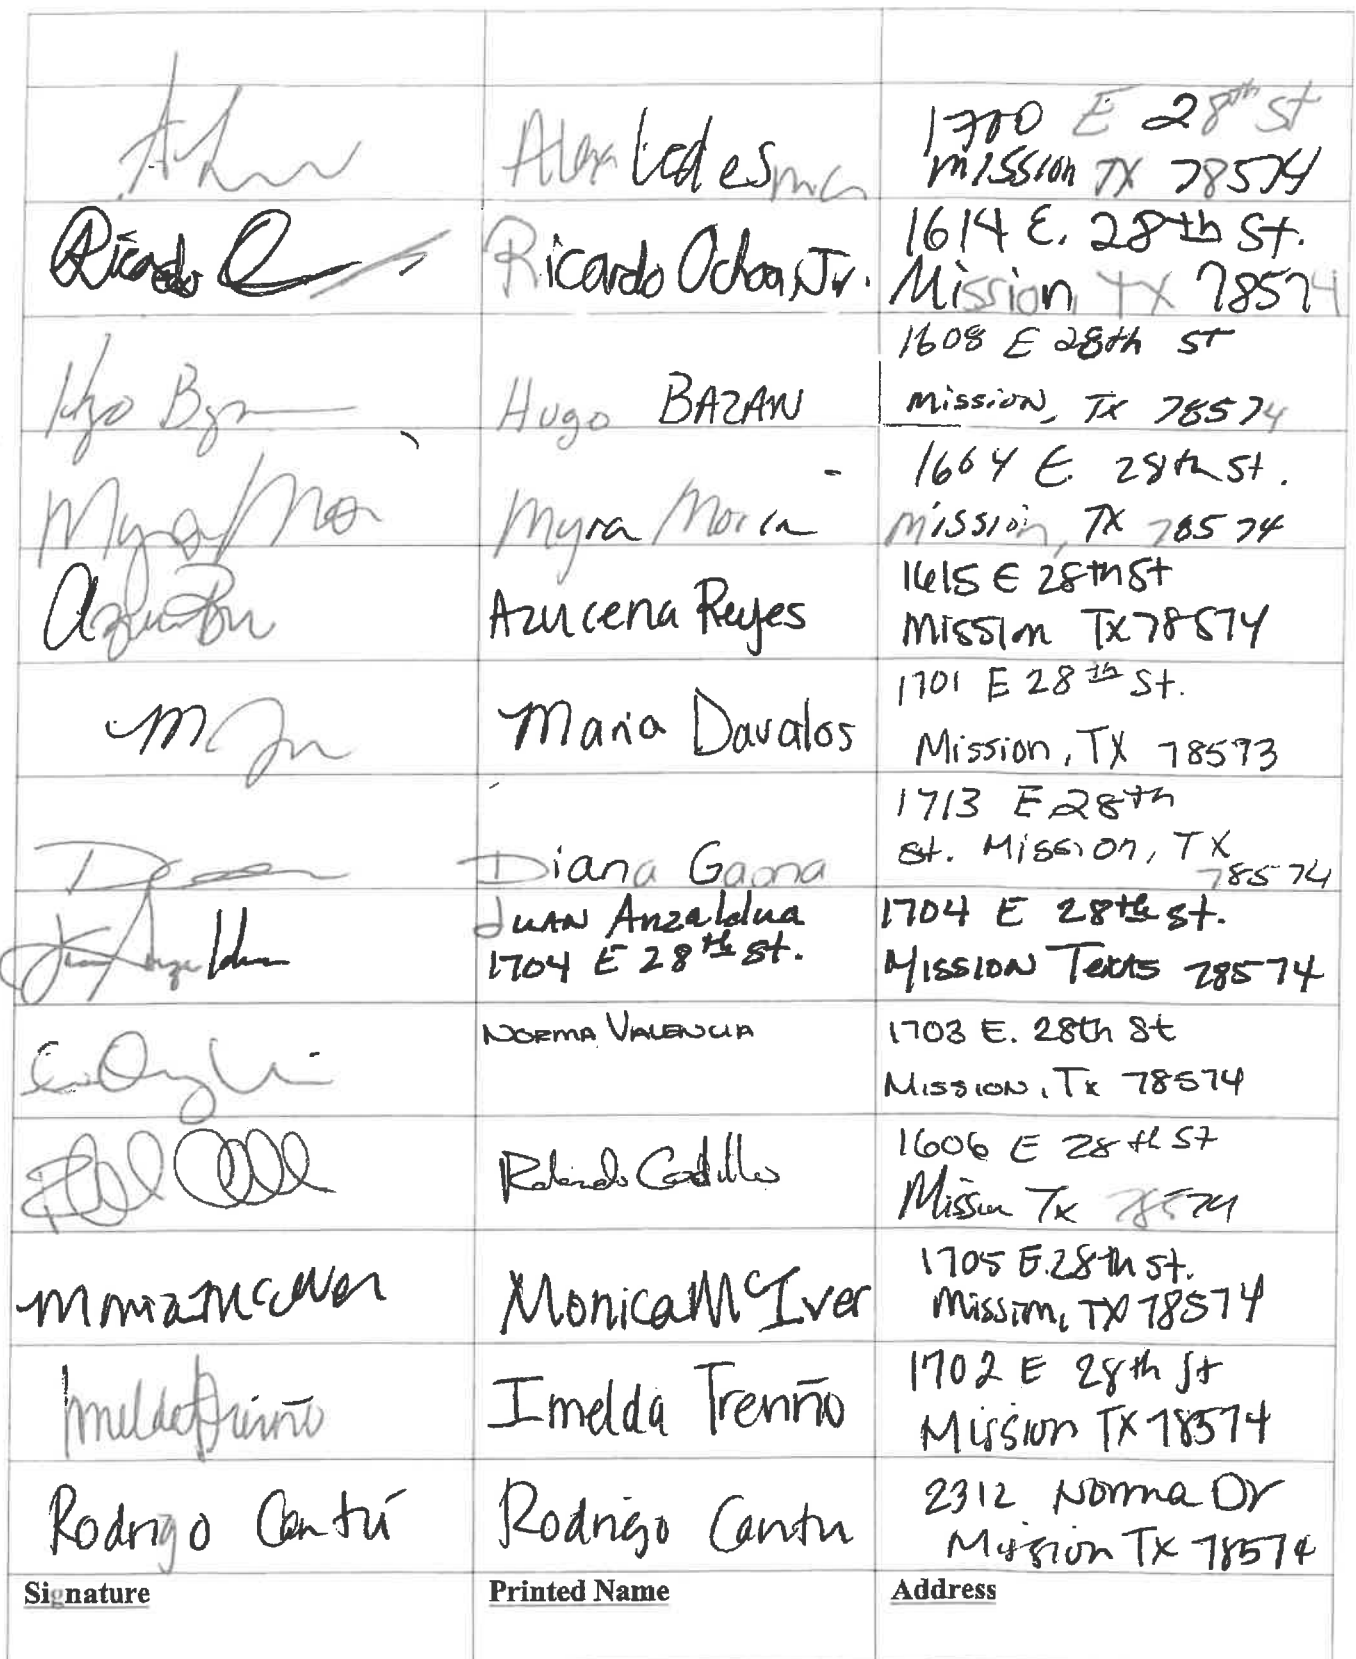 Alex Ledesma 1700 E 28th St
Mission TX 78574
Ricardo O Ricardo Ochoa Jr. 1614 E. 28th St.
Mission, TX 78574
1608 E 28th St
Hugo Bzn Hugo BAZAN Mission, TX 78574
1604 E. 28th St.
Myra Mor Myra Morin Mission, TX 78574
Azucena Reyes 1615 E 28th St
Mission TX 78574
1701 E 28th St.
Maria Davalos Mission, TX 78573
1713 E 28th
Diana Gaona St. Mission, TX
78574
Juan Anzaldua JUAN Anzaldua 1704 E 28th St.
1704 E 28th St. MISSION Texas 78574
NORMA VALENCIA 1703 E. 28th St
MISSION, Tx 78574
1606 E 28th St
Mission Tx 78574
Monica McIver Monica McIver 1705 E. 28th St.
Mission, TX 78574
Imelda Treviño Imelda Treviño 1702 E 28th St
Mission TX 78574
Rodrigo Cantú Rodrigo Cantu 2312 Norma Dr
Mission Tx 78574
Signature Printed Name Address